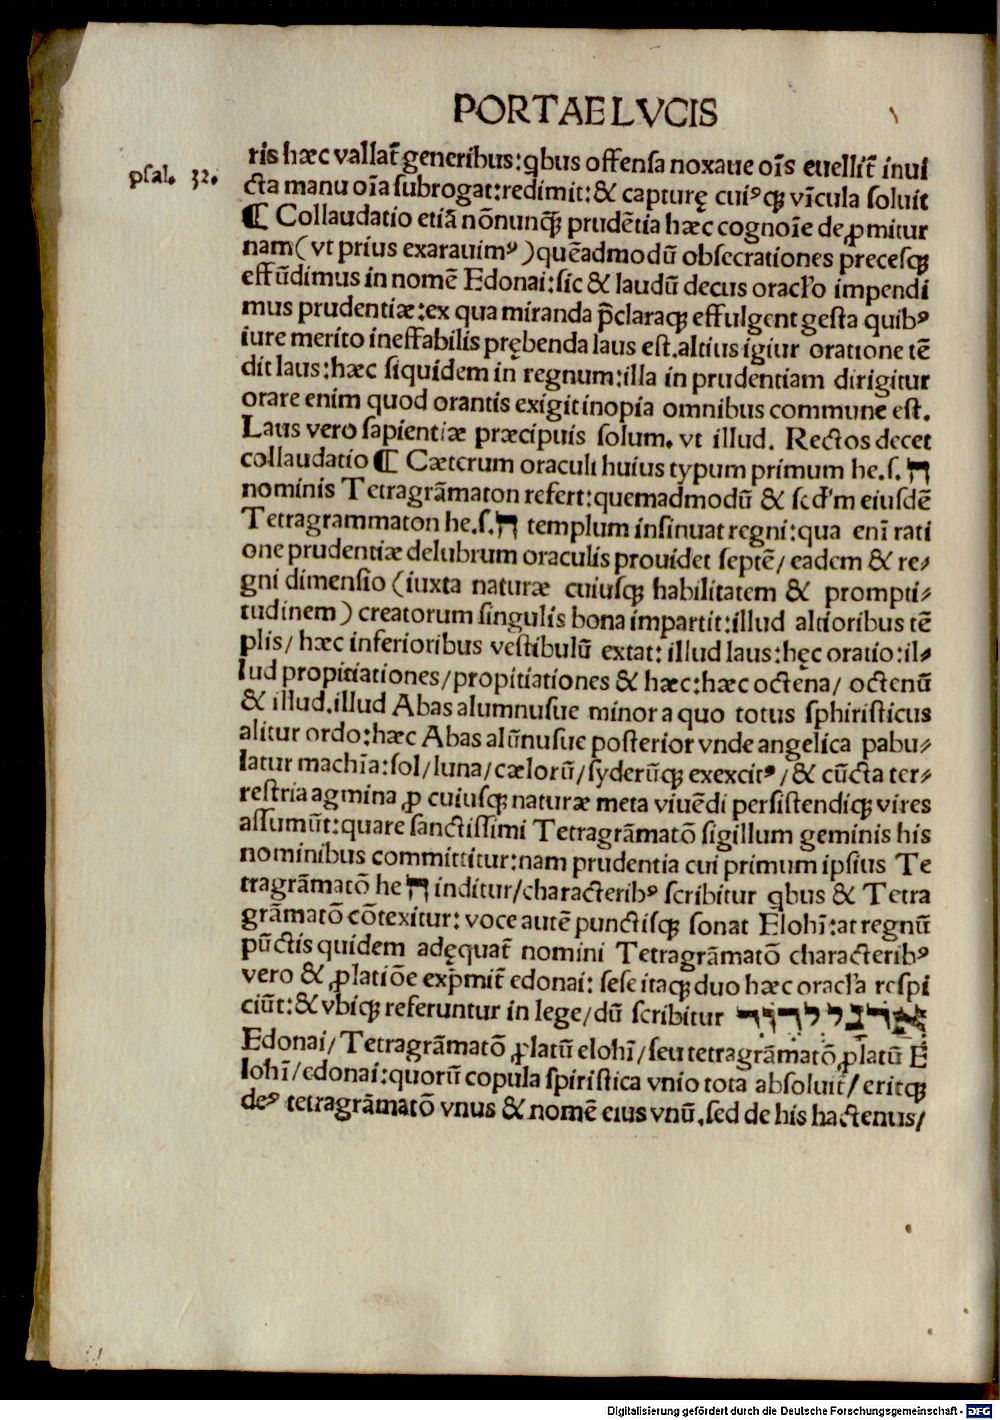 PORTAE LVCIS
psal. 32.
ris hæc vallat̃ generibus: qbus offensa noxaue oı̄s euellit̃ inui
cta manu oı̄a subrogat: redimit: & capturę cui⁹cꝗ vı̄cula soluit
¶ Collaudatio etiā nōnuncꝗ̄ prudētia hæc cognoı̄e deꝓmitur
nam (vt prius exarauim⁹) quēadmodū obsecrationes precescꝗ
effūdimus in nomē Edonai: sic & laudū decus oracl'o impendi
mus prudentiæ: ex qua miranda p̄claracꝗ effulgent gesta quib⁹
iure merito ineffabilis prębenda laus est. altius igiur oratione tē
dit laus: hæc siquidem in regnum: illa in prudentiam dirigitur
orare enim quod orantis exigit inopia omnibus commune est.
Laus vero sapientiæ præcipuis solum. vt illud. Rectos decet
collaudatio ¶ Cæterum oraculi huius typum primum he. s. ה
nominis Tetragrāmaton refert: quemadmodū & secd'm eiusdē
Tetragrammaton he. s. ה templum insinuat regni: qua enı̄ rati
one prudentiæ delubrum oraculis prouidet septē/ eadem & re⸗
gni dimensio (iuxta naturæ cuiuscꝗ habilitatem & prompti⸗
tudinem) creatorum singulis bona impartit: illud altioribus tē
plis/ hæc inferioribus vestibulū extat: illud laus: hęc oratio: il⸗
lud propitiationes/ propitiationes & hæc: hæc octena/ octenū
& illud. illud Abas alumnusue minor a quo totus sphiristicus
alitur ordo: hæc Abas alūnusue posterior vnde angelica pabu⸗
latur machı̄a: sol/ luna/ cælorū/ syderūcꝗ exexcit⁹/ & cūcta ter⸗
restria agmina ꝓ cuiuscꝗ naturæ meta viuēdi persistendicꝗ vires
assumūt: quare sanctissimi Tetragrāmatō sigillum geminis his
nominibus committitur: nam prudentia cui primum ipsius Te
tragrāmatō he ה inditur/ characterib⁹ scribitur qbus & Tetra
grāmatō cōtexitur: voce autē punctiscꝗ sonat Elohı̄: at regnū
pūctis quidem adęquat̃ nomini Tetragrāmatō characterib⁹
vero & ꝓlatiōe exp̄mit̃ edonai: sese itacꝗ duo hæc oracl'a respi
ciūt: & vbicꝗ referuntur in lege/ dū scribitur
Edonai/ Tetragrāmatō ꝓlatū elohı̄/ seu tetragrāmatō ꝓlatū E
lohı̄/ edonai: quorū copula spiristica vnio tota absoluit̃/ eritcꝗ
de⁹ tetragrāmatō vnus & nomē eius vnū. sed de his hactenus/
Digitalisierung gefördert durch die Deutsche Forschungsgemeinschaft - DFG